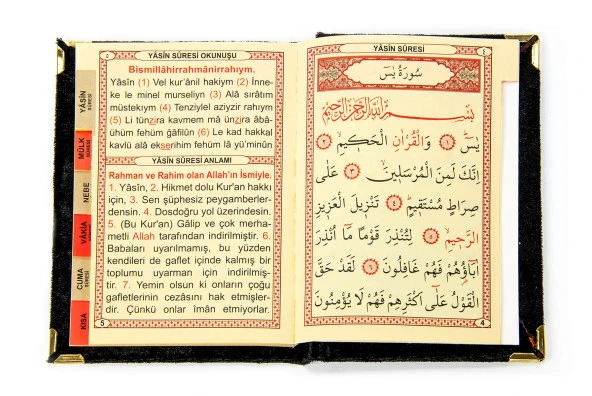 YÂSİN SÛRESİ OKUNUŞU
Bismillâhirrahmânirrahıym.
Yâsîn (1) Vel kur'ânil hakiym (2) İnne-
ke le minel murseliyn (3) Alâ sırâtım
müstekıym (4) Tenziylel aziyzir rahıym
(5) Li tünzira kavmem mâ ünzira âbâ-
ühüm fehüm ğâfilûn (6) Le kad hakkal
kavlü alâ ekserihim fehüm lâ yü'minûn
YÂSÎN SÛRESİ ANLAMI
Rahman ve Rahim olan Allah'ın İsmiyle.
1. Yâsîn, 2. Hikmet dolu Kur'an hakkı
için, 3. Sen şüphesiz peygamberler-
densin. 4. Dosdoğru yol üzerindesin.
5. (Bu Kur'an) Gâlip ve çok merha-
metli Allah tarafından indirilmiştir. 6.
Babaları uyarılmamış, bu yüzden
kendileri de gaflet içinde kalmış bir
toplumu uyarman için indirilmiş-
tir. 7. Yemin olsun ki onların çoğu
gafletlerinin cezâsını hak etmişler-
dir. Çünkü onlar îmân etmiyorlar.
5
YÂSİN SÛRESİ
MÜLK
NEBE
VÂKIA
CUMA
SÛRESİ
KISA
YÂSİN SÛRESİ
٤
سُورَةُ يٰسٓ
بِسْمِ اللّٰهِ الرَّحْمٰنِ الرَّحِيمِ
يٰسٓ ﴿١﴾ وَالْقُرْاٰنِ الْحَكِيمِ ﴿٢﴾
اِنَّكَ لَمِنَ الْمُرْسَلِينَ ﴿٣﴾ عَلٰى
صِرَاطٍ مُسْتَقِيمٍ ﴿٤﴾ تَنْزِيلَ الْعَزِيزِ
الرَّحِيمِ ﴿٥﴾ لِتُنْذِرَ قَوْمًا مَٓا اُنْذِرَ
اٰبَٓاؤُ۬هُمْ فَهُمْ غَافِلُونَ ﴿٦﴾ لَقَدْ حَقَّ
الْقَوْلُ عَلٰٓى اَكْثَرِهِمْ فَهُمْ لَا يُؤْمِنُونَ
4